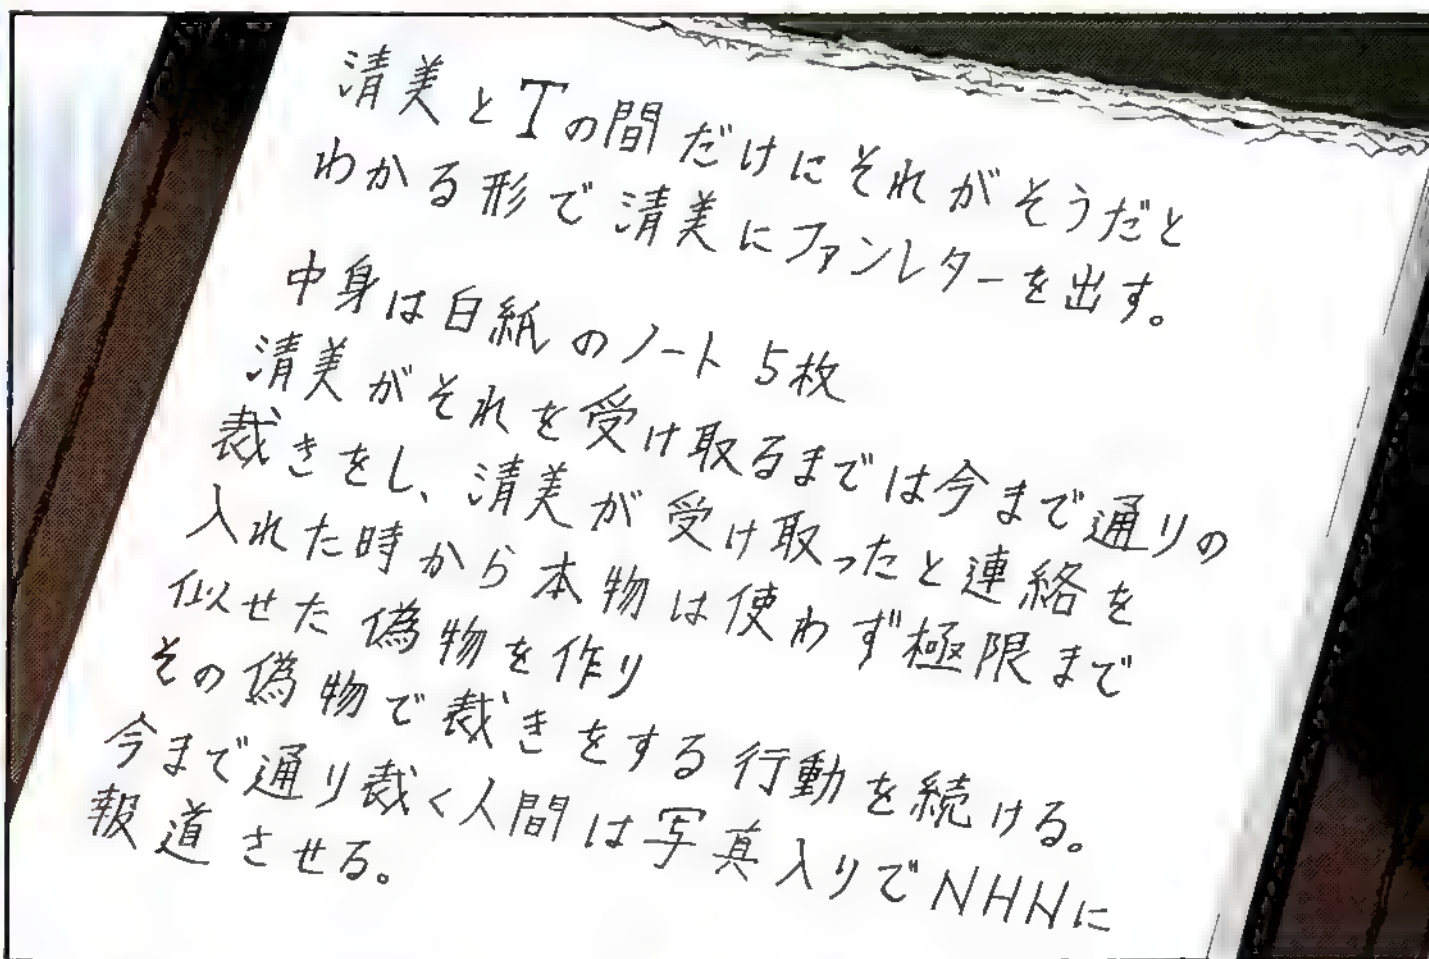 清美とTの間だけにそれがそうだと
わかる形で清美にファンレターを出す。
中身は白紙のノート5枚
清美がそれを受け取るまでは今まで通りの
裁きをし、清美が受け取ったと連絡を
入れた時から本物は使わず極限まで
似せた偽物を作り
その偽物で裁きをする行動を続ける。
今まで通り裁く人間は写真入りでNHNに
報道させる。